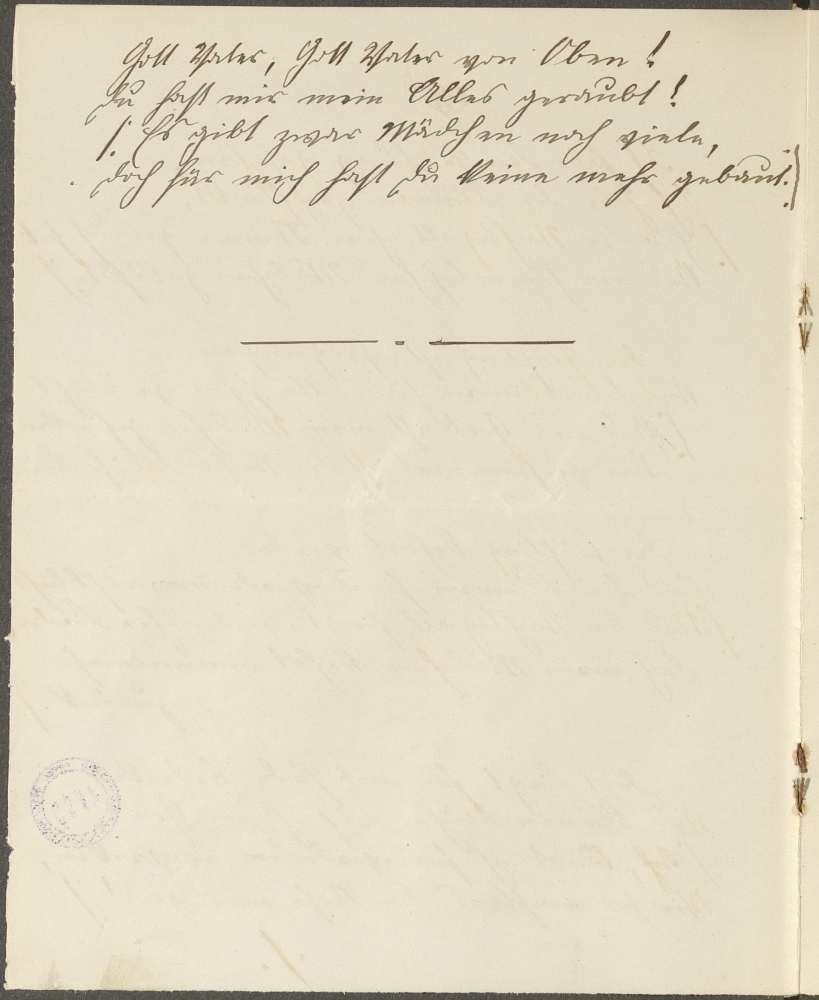 Gott Vater, Gott Vater von Oben!
Du hast mir mein Alles geraubt!
/: Es gibt zwar Mädchen noch viele,
doch für mich hast Du keine mehr gebaut. :/